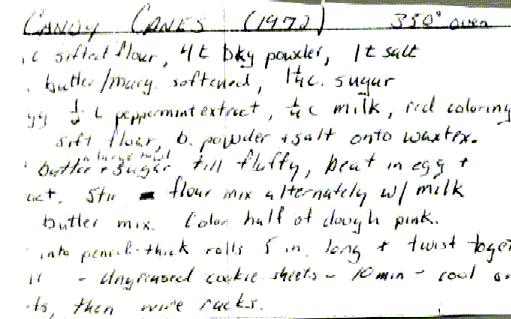 CANDY CANES (1972) 350° oven
c sifted flour, 4t bkg powder, 1t salt
butter/marg. softened, 1¼c. sugar
½ t peppermint extract, ¼ c milk, red coloring
sift flour, b. powder + salt onto waxtex.
butter + sugar in large bowl till fluffy, beat in egg +
Stir flour mix alternately w/ milk
butter mix. Color half of dough pink.
into pencil-thick rolls 5 in. long + twist
- Ungreased cookie sheets - 10 min - cool
then wire racks.